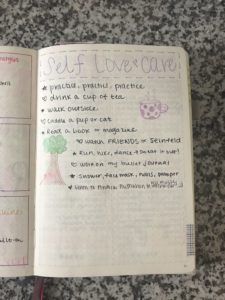 Self Love & Care
★ practice, practice, practice
♡ drink a cup of tea
★ walk outside
♡ cuddle a pup or cat
★ Read a book or magazine
♡ watch FRIENDS or Seinfeld
★ Run, hike, dance + sweat it out!
♡ work on my bullet journal
★ shower, face mask, nails, pamper